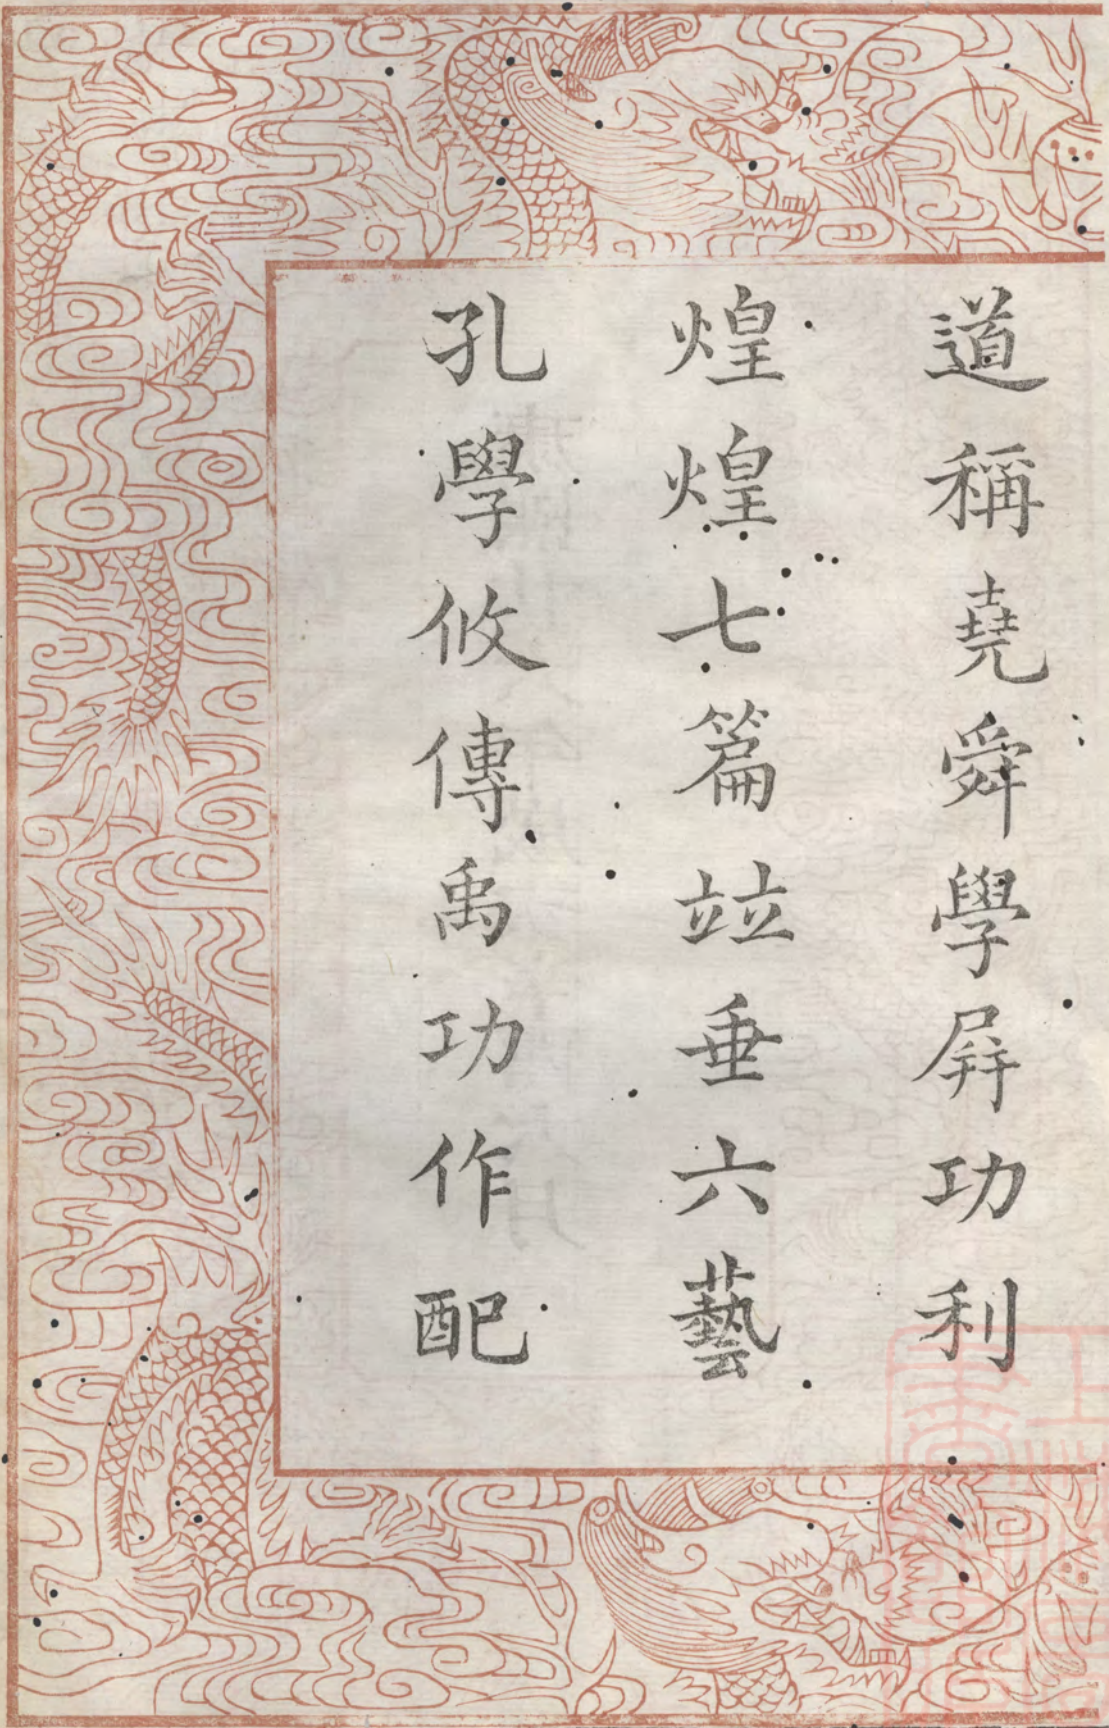 道稱堯舜學屏功利
煌煌七篇竝垂六藝
孔學攸傳禹功作配